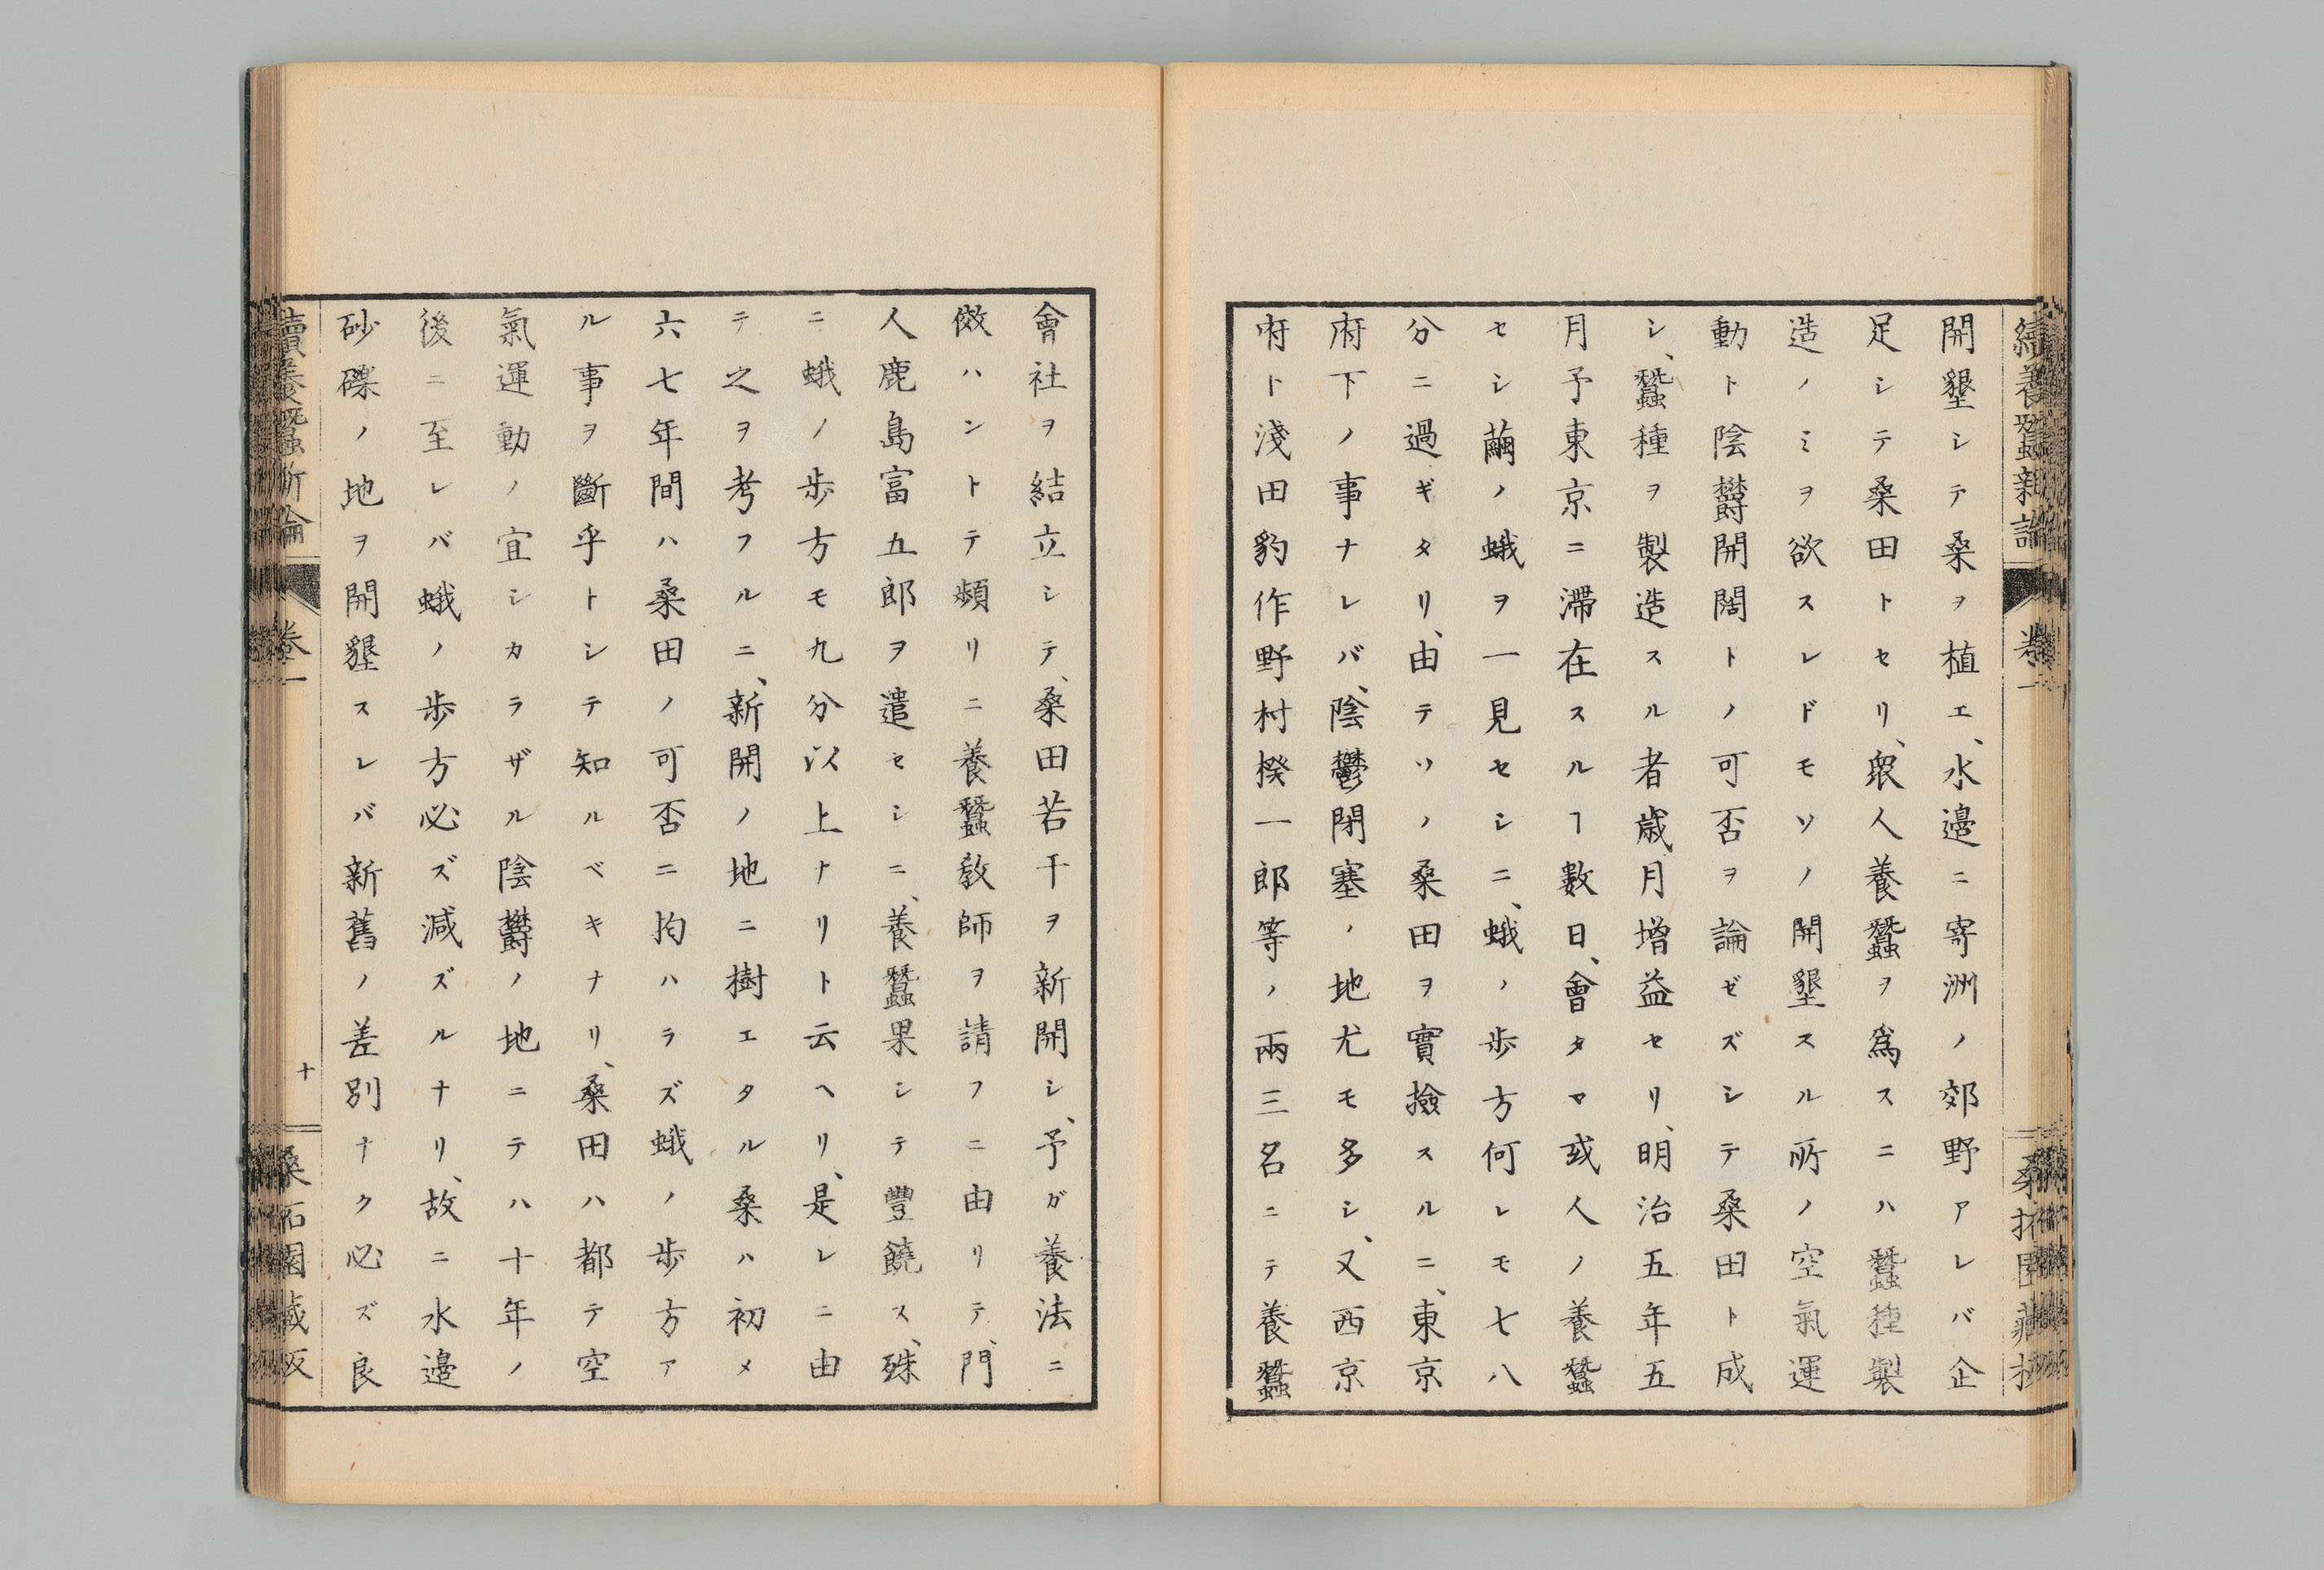 續養蠶新論
卷一
開墾シテ桑ヲ植エ、水邉ニ寄洲ノ郊野アレバ企
足シテ桑田トセリ、衆人養蠶ヲ爲スニハ蠶種製
造ノミヲ欲スレドモソノ開墾スル所ノ空氣運
動ト陰欝開闊トノ可否ヲ論ゼズシテ桑田ト成
シ、蠶種ヲ製造スル者歳月増益セリ、明治五年五
月予東京ニ滯在スルヿ數日、會タマ或人ノ養蠶
セシ繭ノ蛾ヲ一見セシニ、蛾ノ歩方何レモ七八
分ニ過ギタリ、由テソノ桑田ヲ實撿スルニ、東京
府下ノ事ナレバ、陰鬱閉塞ノ地尤モ多シ、又西京
府ト淺田豹作野村揆一郎等ノ兩三名ニテ養蠶
會社ヲ結立シテ、桑田若干ヲ新開シ、予ガ養法ニ
傚ハントテ頻リニ養蠶敎師ヲ請フニ由リテ、門
人鹿島富五郎ヲ遣セシニ、養蠶果シテ豐饒ス、殊
ニ蛾ノ歩方モ九分以上ナリト云ヘリ、是レニ由
テ之ヲ考フルニ、新開ノ地ニ樹エタル桑ハ初メ
六七年間ハ桑田ノ可否ニ拘ハラズ蛾ノ歩方ア
ル事ヲ斷乎トシテ知ルベキナリ、桑田ハ都テ空
氣運動ノ宜シカラザル陰欝ノ地ニテハ十年ノ
後ニ至レバ蛾ノ歩方必ズ減ズルナリ、故ニ水邉
砂礫ノ地ヲ開墾スレバ新舊ノ差別ナク必ズ良
續養蠶新論
卷一
十